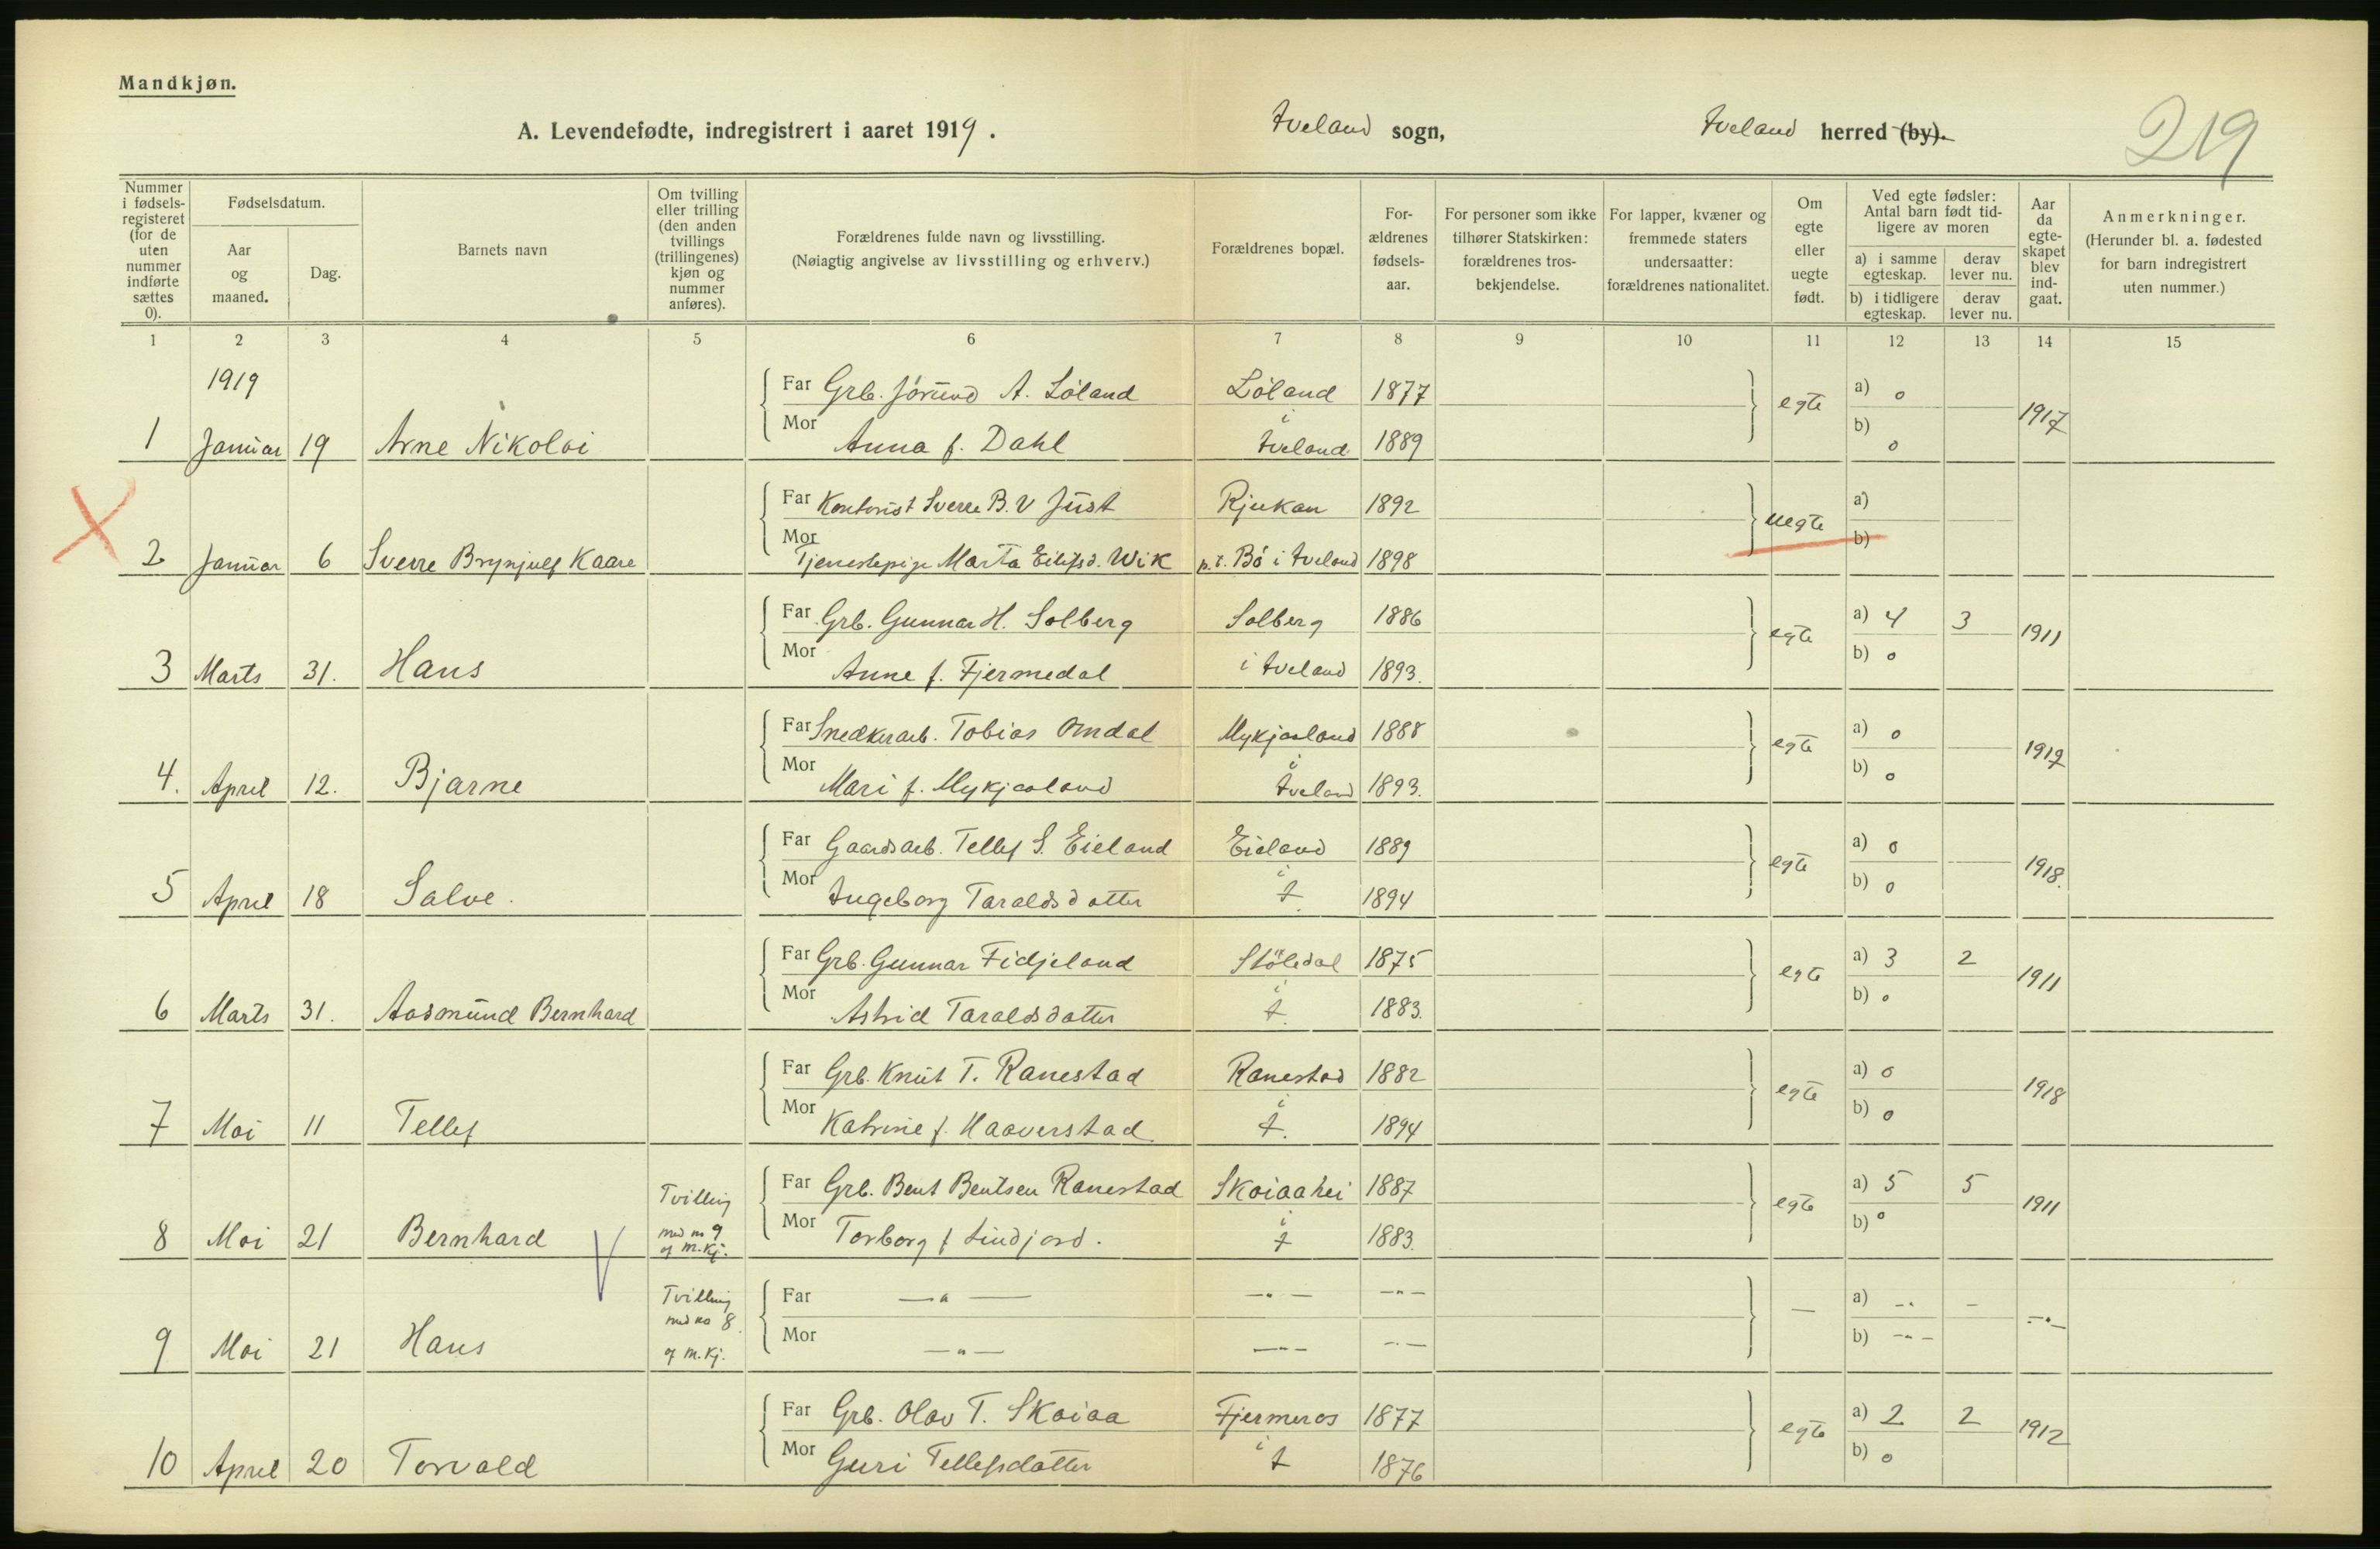 Mandkjøn.
A. Levendefødte, indregistrert i aaret 1919. Iveland sogn, Iveland herred (by). 219
Nummer i fødsels-registeret (for de uten nummer indførte sættes 0).
Fødselsdatum.
Aar og maaned.
Dag.
Barnets navn
Om tvilling eller trilling (den anden tvillings (trillingenes) kjøn og nummer anføres).
Forældrenes fulde navn og livsstilling.
(Nøiagtig angivelse av livsstilling og erhverv.)
Forældrenes bopæl.
For-ældrenes fødsels-aar.
For personer som ikke tilhører Statskirken: forældrenes tros-bekjendelse.
For lapper, kvæner og fremmede staters undersaatter: forældrenes nationalitet.
Om egte eller uegte født.
Ved egte fødsler: Antal barn født tid-ligere av moren
a) i samme egteskap. derav lever nu.
b) i tidligere egteskap. derav lever nu.
Aar da egte-skapet blev ind-gaat.
Anmerkninger.
(Herunder bl. a. fødested for barn indregistrert uten nummer.)
1 2 3 4 5 6 7 8 9 10 11 12 13 14 15
1919
Far Grb. Jørund A. Løland Løland 1877 egte a) 0 1917
1 Januar 19 Arne Nikolai Mor Anna f. Dahl i Iveland 1889 b) 0
Far Kontorist Sverre B. V Just Rjukan 1892 uegte a)
2 Januar 6 Sverre Brynjulf Kaare Mor Tjenestepige Marta Eilifsd. Wik p.t. Bö i Iveland 1898 b)
Far Grb. Gunnar H. Solberg Solberg 1886 egte a) 4 3 1911
3 Marts 31. Hans Mor Anne f. Fjermedal i Iveland 1893. b) 0
Far Snedkerarb. Tobias Omdal Mykjaaland 1888 egte a) 0 1917
4. April 12. Bjarne Mor Mari f. Mykjaaland i Iveland 1893. b) 0
Far Gaardsarb. Tellef S. Eieland Eieland 1889 egte a) 0 1918.
5 April 18 Salve. Mor Ingeborg Taraldsdotter i I. 1894 b) 0
Far Grb. Gunnar Fidjeland Stöledal 1875 egte a) 3 2 1911
6 Marts 31. Aasmund Bernhard Mor Astrid Taraldsdotter i I. 1883. b) 0
Far Grb. Knut T. Ranestad Ranestad 1882 egte a) 0 1918
7 Mai 11 Tellef Mor Katrine f. Haaverstad i I. 1894 b) 0
Far Grb. Bent Bentsen Ranestad Skaiaahei 1887 egte a) 5 5 1911
8 Mai 21 Bernhard Tvilling med no 9 af m.kj. Mor Torborg f Lindjord. i I 1883. b) 0
Far — " — — " — — " — — a) — " — —"—
9 Mai 21 Hans Tvilling med no 8. af m.kj. Mor — " — — " — — " — b) — " —
Far Grb. Olav T. Skaiaa Fjermeros 1877 egte a) 2 2 1912
10 April 20 Torvald Mor Guri Tellefsdatter i I 1876 b) 0